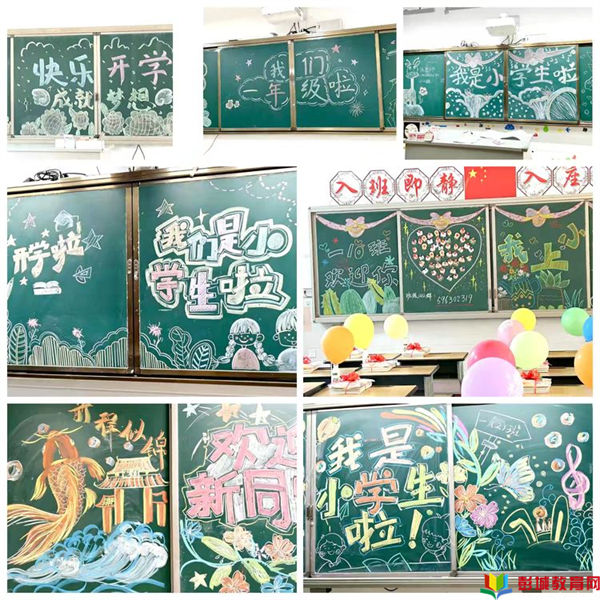 快乐开学
成就梦想
我们
一年级啦
我是小学生啦
开学啦
我们是小
学生啦
入班即静
入座
一 班
欢迎你
班级QQ群
596302319
我上小
前程似锦
欢迎
新同
我是
小学生
啦！
彭城教育网